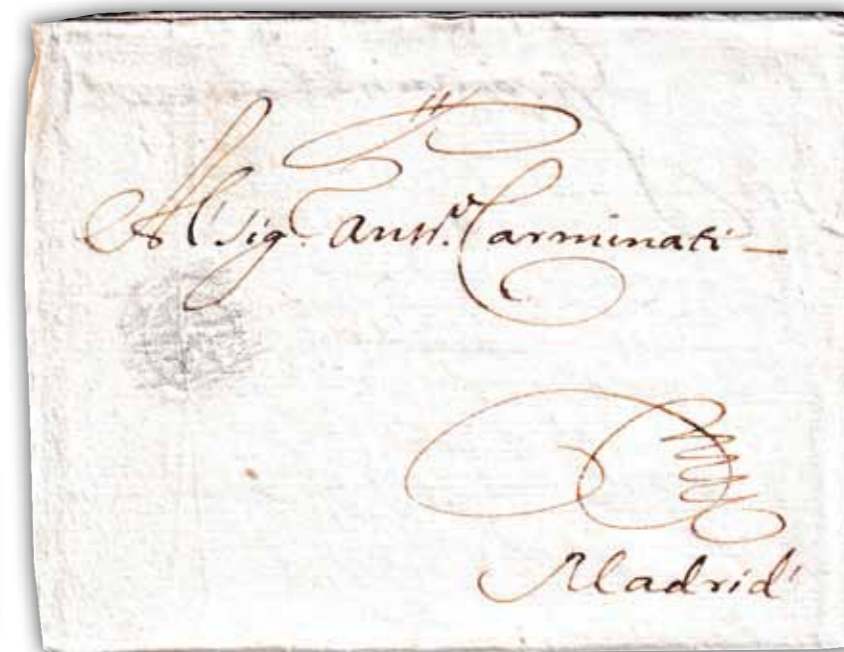 Al Sig.r Ant.o Carminati
Madrid